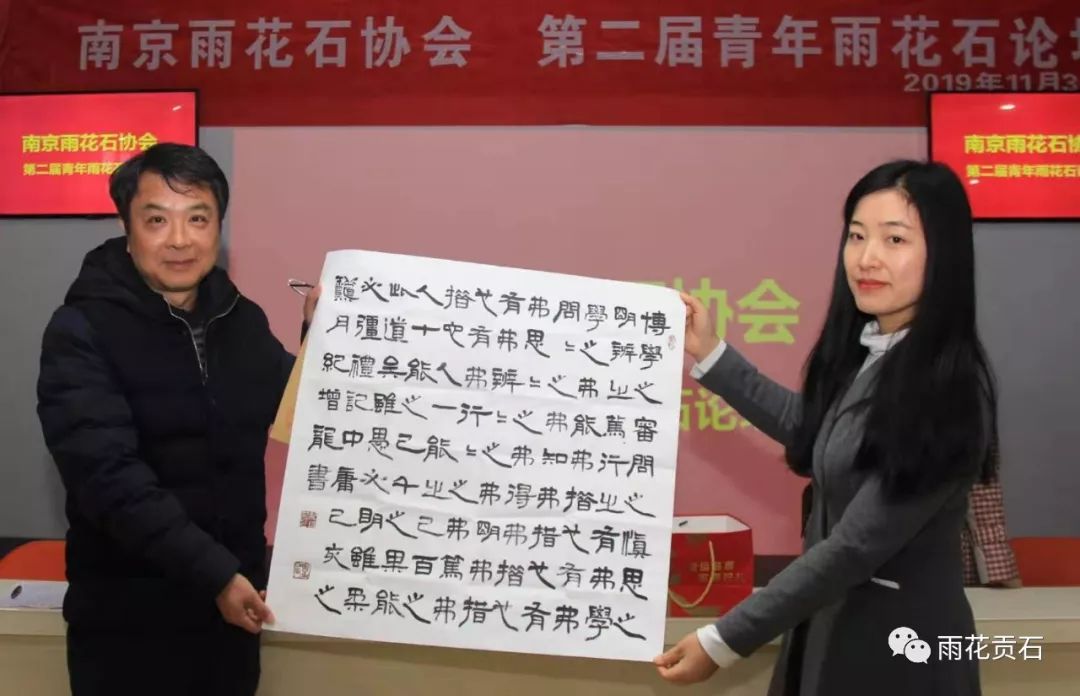 南京雨花石协会 第二届青年雨花石论坛
2019年11月3
南京雨花石协会
第二届青年雨花石
南京雨花石协
第二届青年雨花石
协会
石论
博學之審問之慎思之
明辨之篤行之有弗學
學之弗能弗措也有弗
問〻之弗知弗措也有
弗思〻之弗得弗措也
有弗辨〻之弗明弗措
也有弗行〻之弗篤弗
措也人一能之己百之
人十能之己千之果能
此道矣雖愚必明雖柔
必彊禮記中庸己亥之
月紀增龍書
雨花贡石